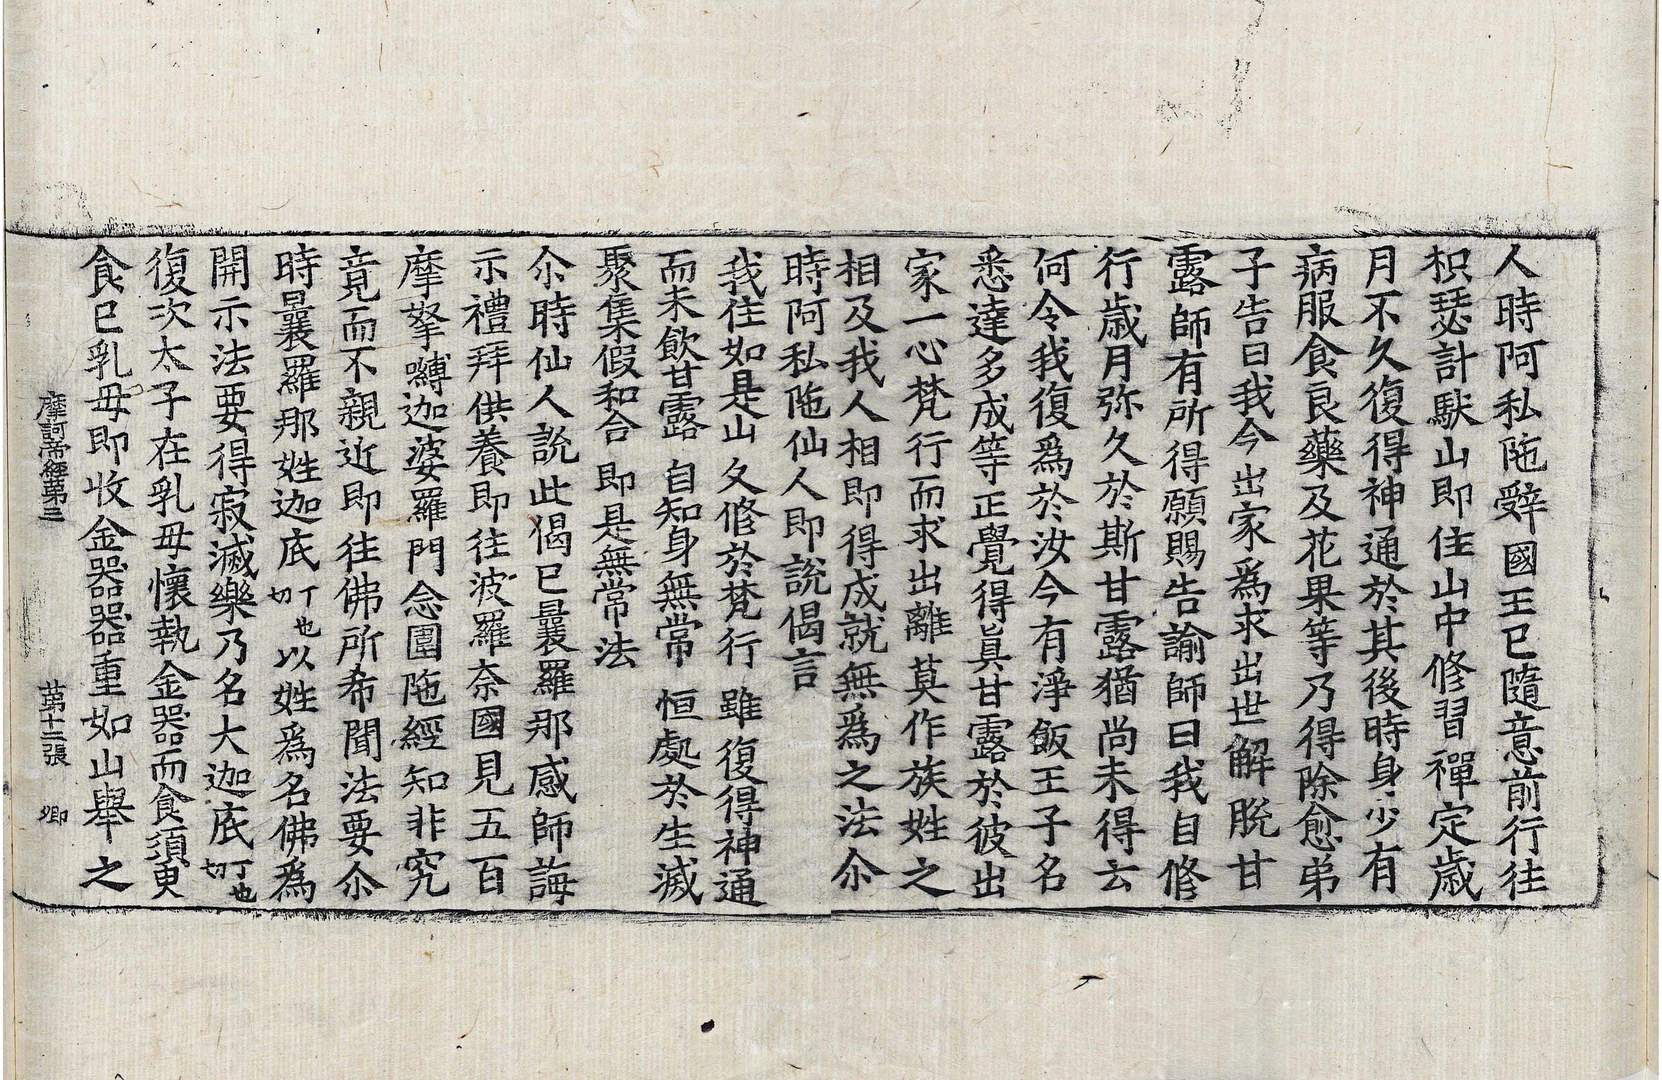 人時阿私陁辝國王已隨意前行往
枳瑟計䭾山即住山中修習禪定歲
月不久復得神通於其後時身少有
病服食良藥及花果等乃得除愈弟
子告曰我今出家爲求出世解脫甘
露師有所得願賜告諭師曰我自修
行歲月弥久於斯甘露猶尚未得云
何令我復爲於汝今有淨飯王子名
悉達多成等正覺得眞甘露於彼出
家一心梵行而求出離莫作族姓之
相及我人相即得成就無爲之法尒
時阿私陁仙人即說偈言
我住如是山 久修於梵行 雖復得神通
而未飮甘露 自知身無常 恒處於生滅
聚集假和合 即是無常法
尒時仙人說此偈已曩羅那感師誨
示禮拜供養即往波羅奈國見五百
摩拏嚩迦婆羅門念圍陁經知非究
竟而不親近即往佛所希聞法要尒
時曩羅那姓迦底丁也切以姓爲名佛爲
開示法要得寂滅樂乃名大迦底丁也切
復次太子在乳母懷執金器而食須臾
食已乳母即收金器器重如山舉之
摩訶帝經第三 第十二張 卿